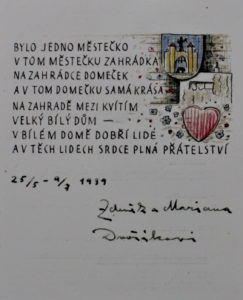 BYLO JEDNO MĚSTEČKO
V TOM MĚSTEČKU ZAHRÁDKA
NA ZAHRÁDCE DOMEČEK
A V TOM DOMEČKU SAMÁ KRÁSA
NA ZAHRADĚ MEZI KVÍTÍM
VELKÝ BÍLÝ DŮM —
V BÍLÉM DOMĚ DOBŘÍ LIDÉ
A V TĚCH LIDECH SRDCE PLNÁ PŘÁTELSTVÍ
25/5 - 9/7 1939
a Mariana
Dvořákovi